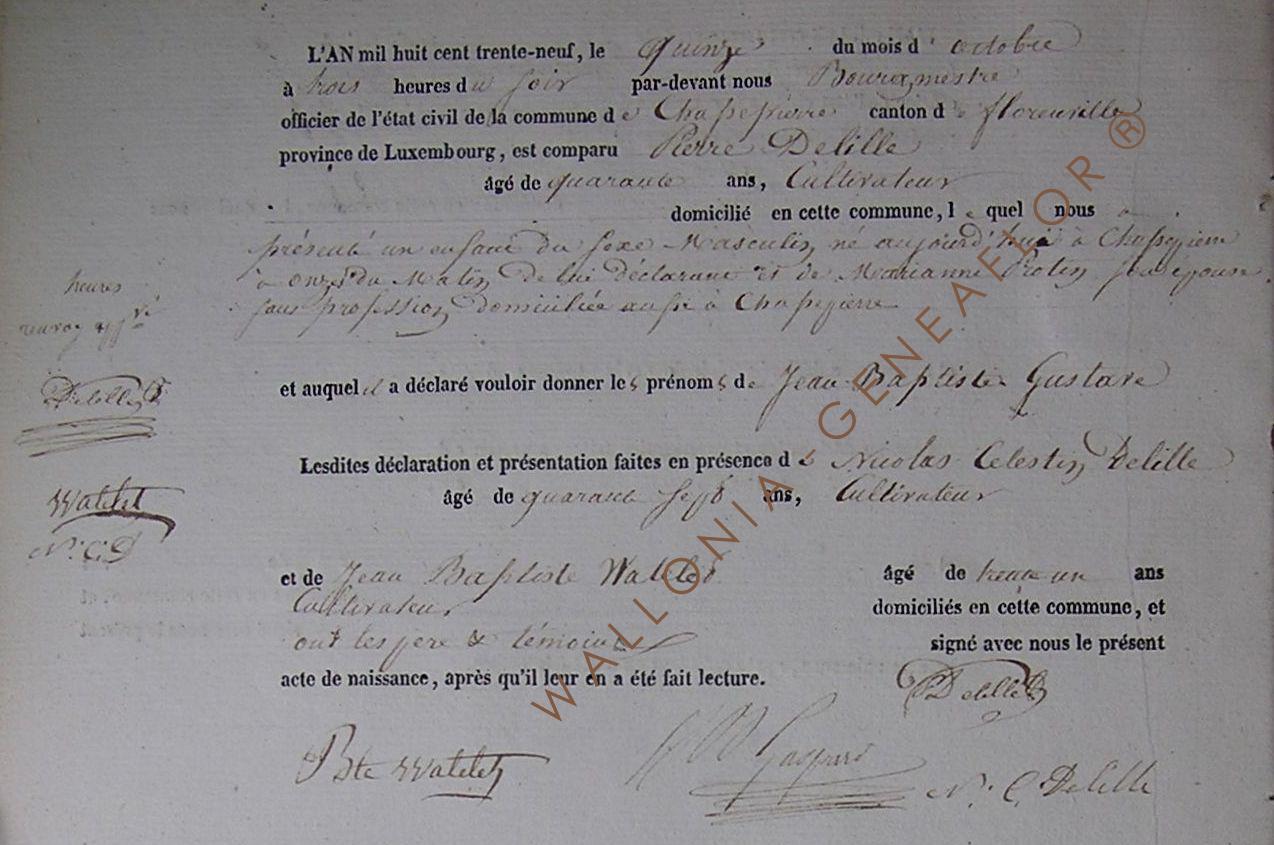 L'AN mil huit cent trente-neuf, le quinze du mois d'octobre
à trois heures du soir par-devant nous Bourgmestre
officier de l'état civil de la commune de Chassepierre canton de florenville
province de Luxembourg, est comparu Pierre Delille
âgé de quarante ans, Cultivateur
domicilié en cette commune, lequel nous a
présenté un enfant du sexe Masculin né aujourd'hui à Chassepierre
à onze du Matin de lui déclarant et de Marianne Protin son épouse
sans profession domiciliée aussi à Chassepierre
heures
renvoi app.vé
Delille
Watelet
N. C. D
et auquel il a déclaré vouloir donner les prénoms de Jean Baptiste Gustave
Lesdites déclaration et présentation faites en présence de Nicolas Celestin Delille
âgé de quarante sept ans, Cultivateur
et de Jean Baptiste Watelet âgé de trente un ans
Cultivateur domiciliés en cette commune, et
ont les pere & témoins signé avec nous le présent
acte de naissance, après qu'il leur en a été fait lecture.
P Delille
Bte Watelet
Gaspard
N. C. Delille
WALLONIA GENEAFLOR ®